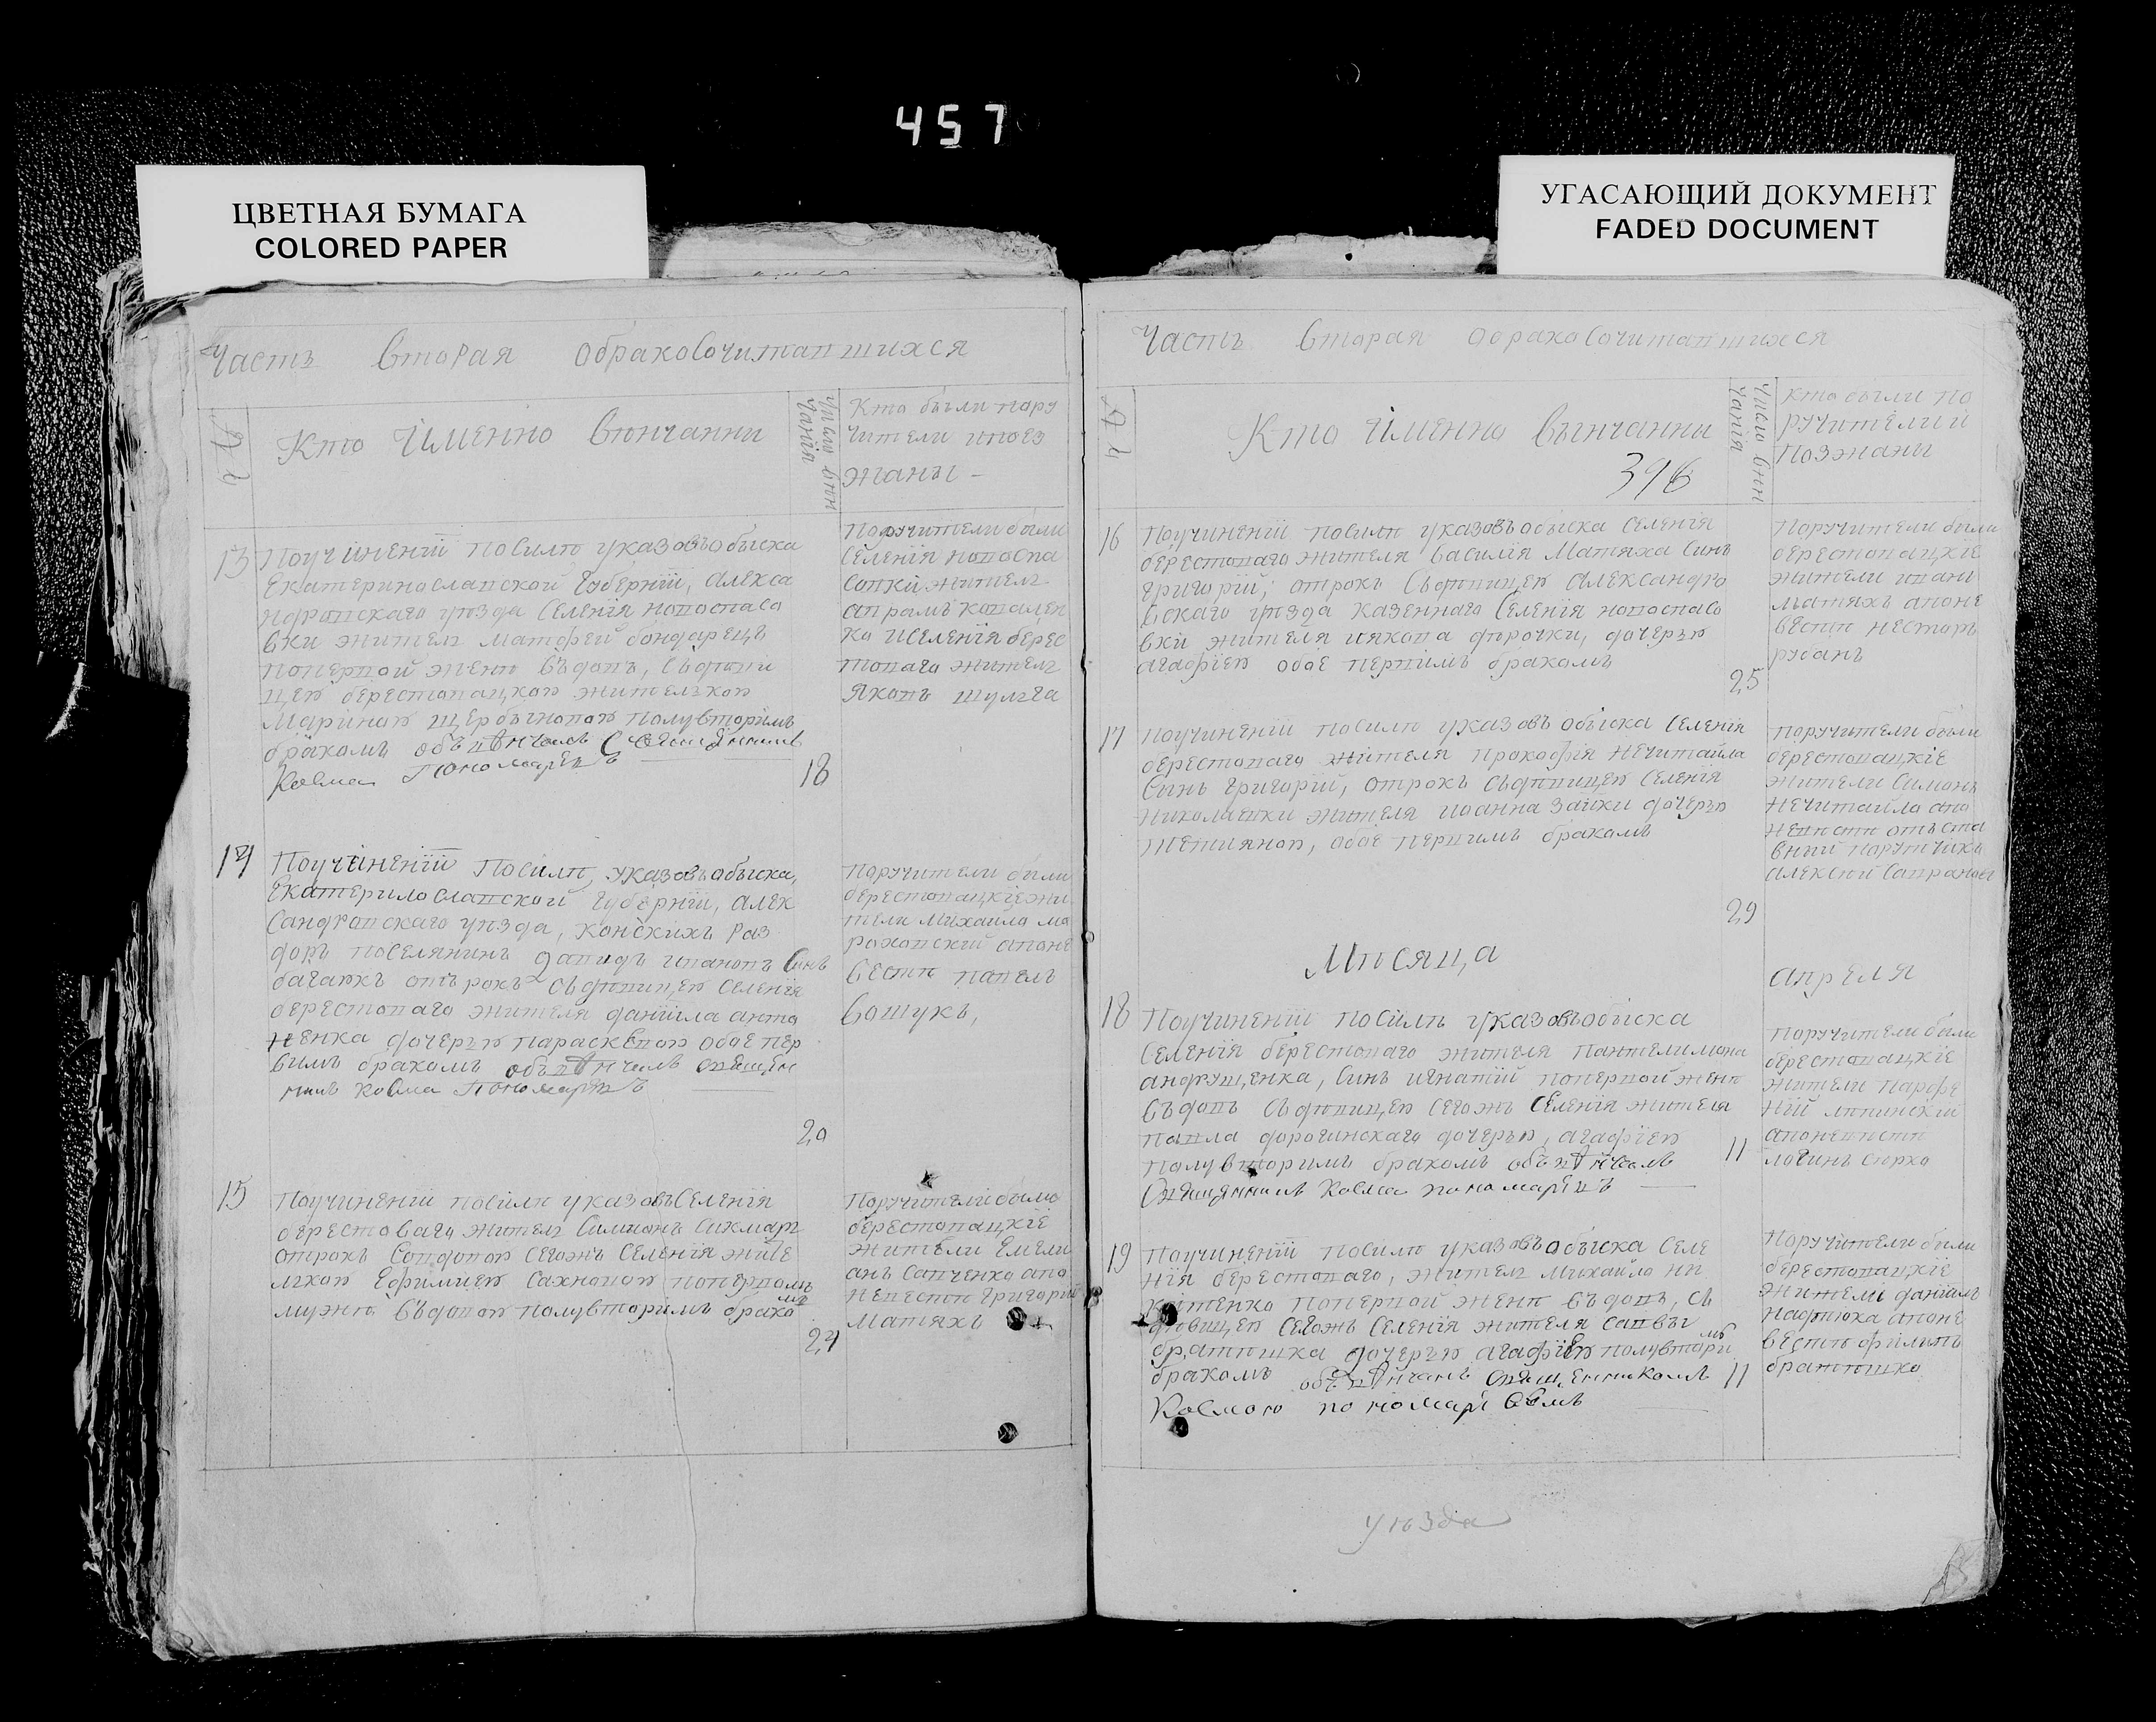 457
ЦВЕТНАЯ БУМАГА
COLORED PAPER
УГАСАЮЩИЙ ДОКУМЕНТ
FADED DOCUMENT
Часть вторая обракосочитавшихся
Кто именно венчанни
Число вен
чанія
Кто были пору
чители и поез
жаны -
13
Поучиненіи посиле указовъ обыска
Екатеринославской губерніи, алекса
ндровскаго уезда селенія новоспасо
вки жителъ матфей бондарецъ
попервой жене вдовъ, съ девы
цею берестовацкою жителькою
Мариною щербыновою полувторимъ
бракомъ обвѣнчалъ Священникъ
Косма Пономаревъ
18
Поручители были
Селенія новоспа
совки жителъ
аврамъ ковален
ко и селенія берес
товаго жителъ
Яковъ шульга
14
Поучиненіи посиле указовъ обыска,
Екатеринославской губерніи, алек
сандровскаго уезда, конскихъ раз
доръ поселянинъ давидъ ивановъ синъ
отърокъ съ девицею селенія
берестоваго жителя даніила анто
ненка дочерью параскевою обое пер
вимъ бракомъ обвѣнчалъ священ
никъ косма Пономаревъ
20
Поручители были
берестовацкіе жи
тели Михаила ма
раховский апоне
весте павелъ
бошукъ,
15
Поучиненіи посиле указовъ Селенія
берестоваго жителъ Симионъ Сикмаръ
отрокъ Совдовою сегожъ селенія жите
лкою Ефимиею Сахновою поперво
мужю въдовою полувторимъ брако
мъ
24
Поручители были
берестовацкіе
жители Емели
анъ Савченко апо
невесте григорій
Матяхъ
Часть вторая обракосочитавшихся
Кто именно вынчанни
396
Число вен
чанія
Кто были по
ручители и
поезжаны
16
Поучиненіи посиле указовъ обыска селенія
берестоваго жителя василія Матяха синъ
григорій; отрокъ съ девицею александро
вскаго уезда казеннаго селенія новоспасо
вки жителя иякова фирочки, дочерью
агафіею обое первимъ бракомъ
25
Поручители были
берестовацкіе
жители иванъ
матяхъ апоне
весте несторъ
рубанъ
17
Поучиненіи посиле указовъ обыска селенія
берестоваго жителя прокофія нечитайла
синъ григорій, отрокъ съ девицею селенія
николаевки жителя иоанна зайки дочерью
обое первимъ бракомъ
29
Поручители были
берестовацкіе
жители Симонъ
нечитайло апо
невесте отъста
вний порутчикъ
алексей
Месяца
апреля
18
Поучиненіи посиле указовъ обыска
селенія берестоваго жителя пантелимона
андрущенка, синъ игнатій поперной жене
въдовъ съ девицею сегожъ селенія жителя
павла дорогинскаго дочерью, агафіею
полувторимъ бракомъ обвѣнчалъ
Священникъ Косма пономаревъ
11
Поручители были
берестовацкіе
жители парфе
ній липинскій
апоневесте
логинъ сюрко
19
Поучиненіи посиле указовъ обыска селе
нія берестоваго, жителъ михайло ни
китенко поперной жене въдовъ, съ
девицею сегожъ селенія жителя саввы
братишка дочерью агафіею полувтори
мъ
бракомъ обвѣнчанъ священникомъ
Космою пономаревымъ
11
Поручители были
берестовацкіе
жители даніилъ
апоне
весте филипъ
братишко
уезда